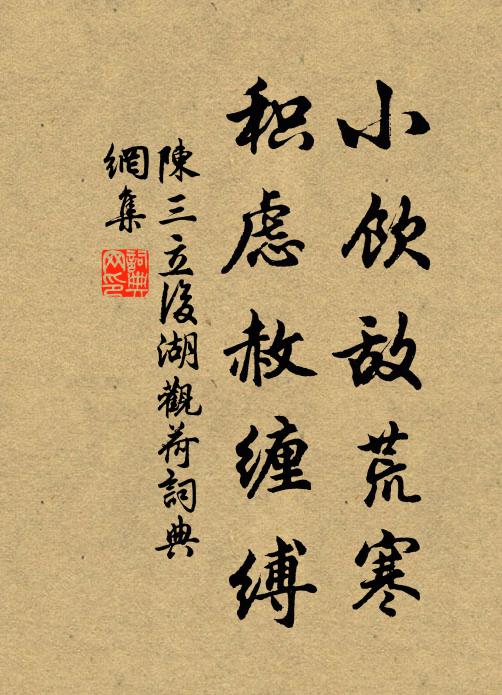 小饮敌荒寒
积虑赦缠缚
陳三立後湖觀荷詞典
網集
詞典
网印